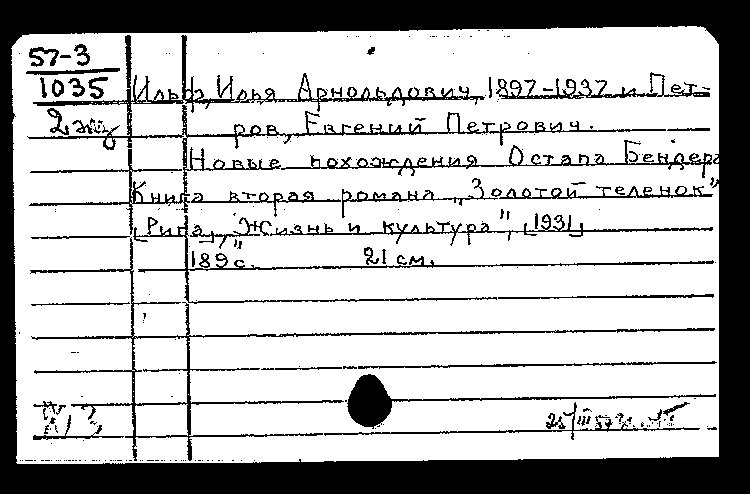 57-3
1035
2 экз
Ильф, Илья Арнольдович, 1897-1937 и Пет-
ров, Евгений Петрович.
Новые похождения Остапа Бендера
Книга вторая романа „Золотой теленок"
[Рига], „Жизнь и культура", [1931]
189 с. 21 см.
25/III 57